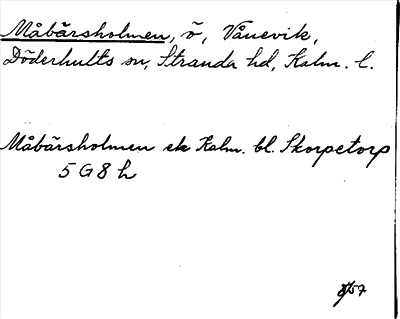 Måbärsholmen, ö, Vånevik,
Döderhults sn, Stranda hd, Kalm. l.
Måbärsholmen ek Kalm. bl. Skorpetorp
5 G 8 h